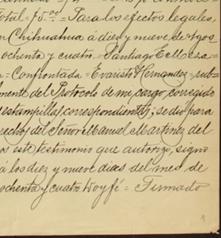 total, $5. c.s = Para los efectos legales,
Chihuahua á diez y nueve de Agos
ochenta y cuatro. Santiago E
Confrontada = Evaristo Hernandez, sub
mente del Protocolo de mi cargo, corregido
estampillas correspondientes; se dió para
rechos del Señor Manuel Martinez del
os este testimonio que autorizo, signo
á los diez y nueve dias del mes de
ochenta y cuatro. Doy fé = Firmado